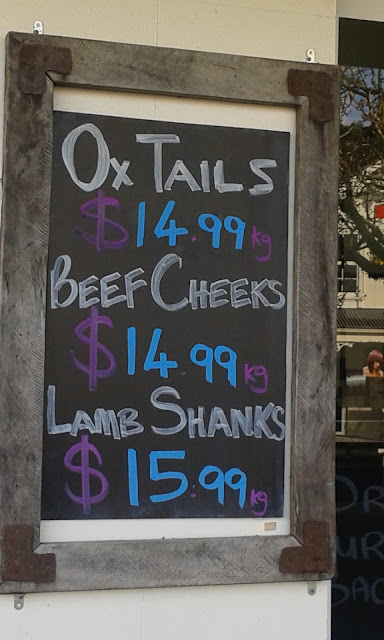 Ox Tails
$14.99 kg
Beef Cheeks
$14.99 kg
Lamb Shanks
$15.99 kg